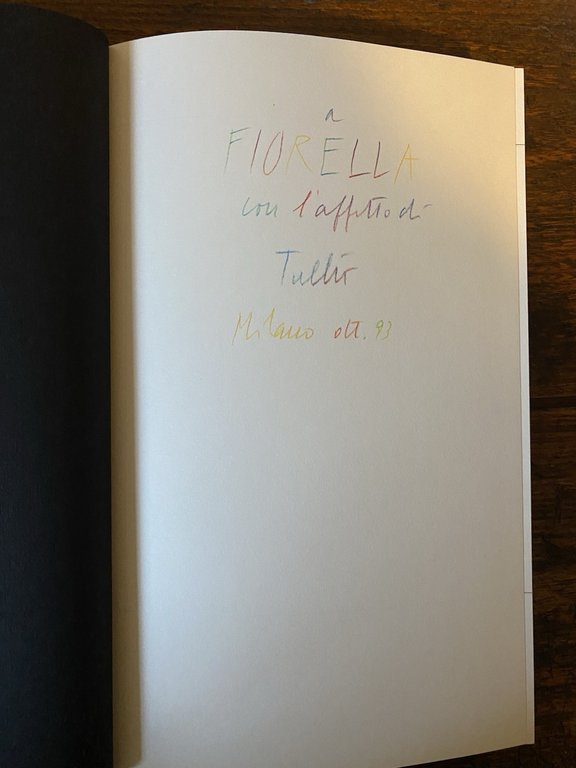 a
FIORELLA
con l'affetto di
Tullio
Milano ott. 93